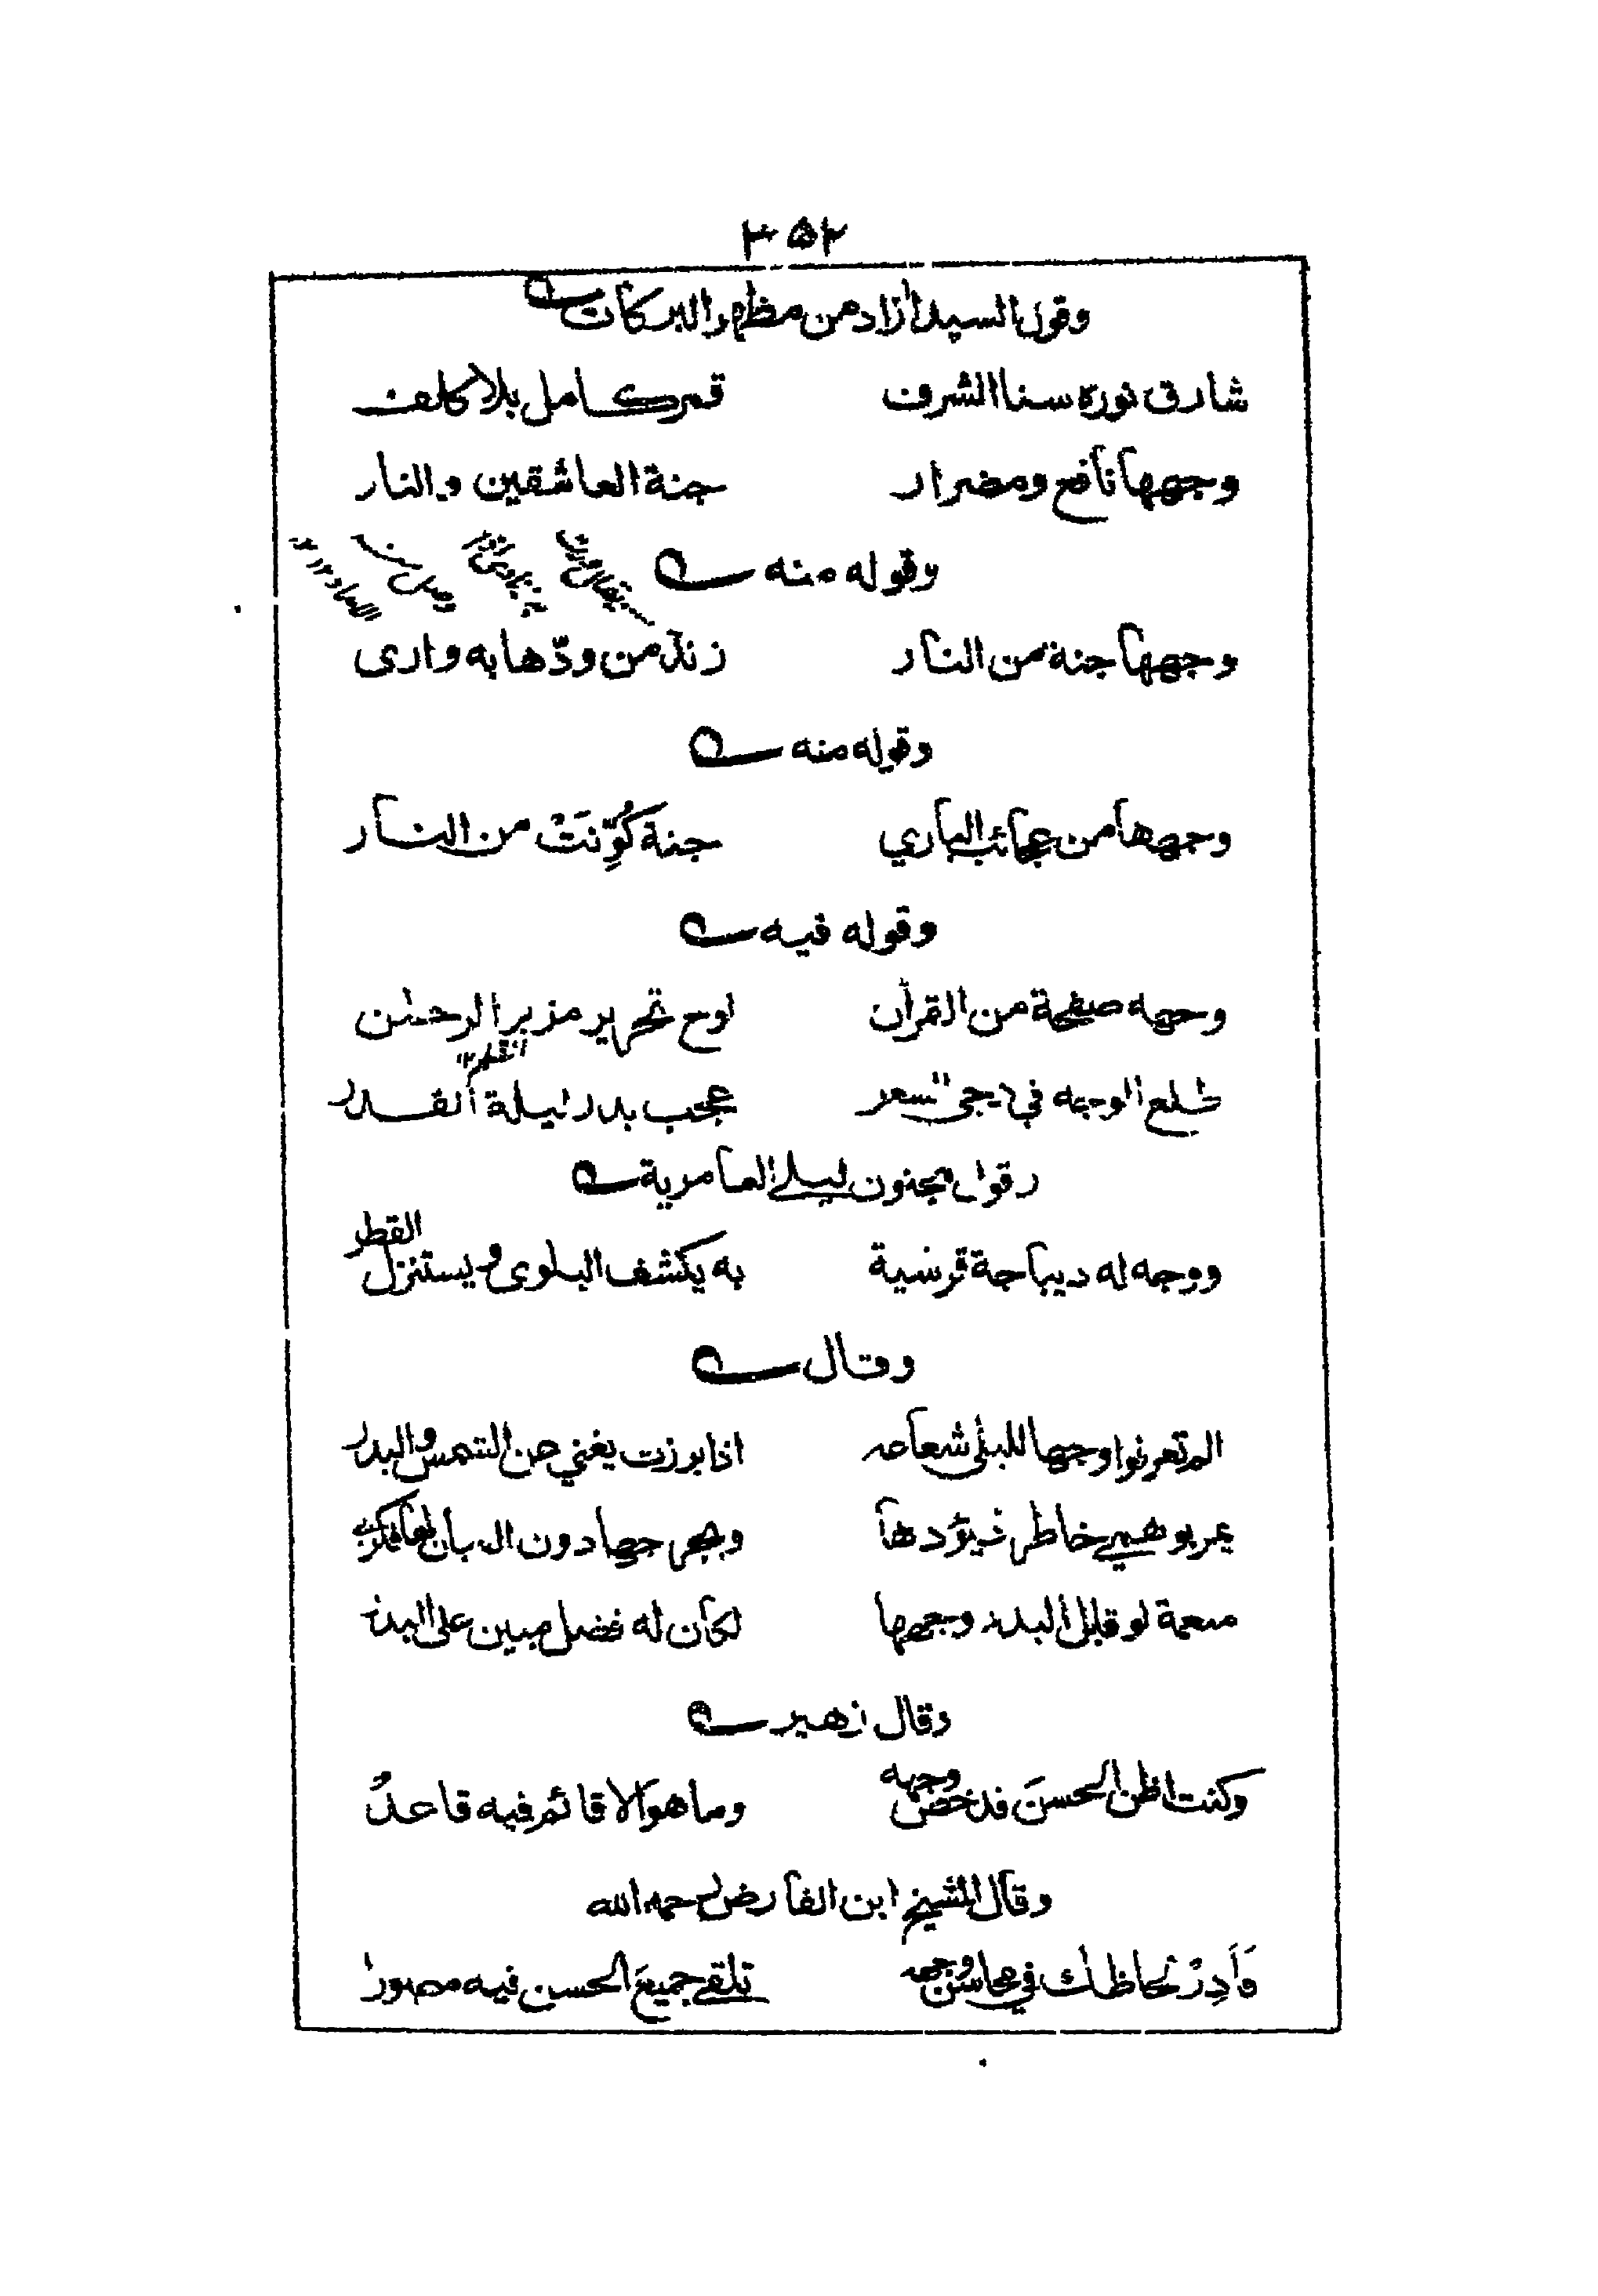 ٣٥٢
وقول السيد آزاد من مظهر البركات
شارق نوره سنا الشرف قمر كامل بلا كلف
وجهها نافع ومضرار جنة العاشقين والنار
وقوله منه
وجهها جنة من النار زند من ودّها به وارى
وقوله منه
وجهها من عجائب الباري جنة كُوِّنَتْ من النار
وقوله فيه
وجهه صفحة من القرآن لوح تحرير مزبر الرحمٰن
طلع الوجه في دجى الشعر عجب بدر ليلة القدر
وقول مجنون ليلى العامرية
ووجه له ديباجة قرشية به يكشف البلوى ويستنزل القطر
وقال
الم تعرفوا وجها لليلى شعاعه اذا برزت يغني عن الشمس والبدر
يمر بوهمي خاطر فيؤدها ويجرحها دون العيان لها فكرى
منعمة لو قابل البدر وجهها لكان له فضل مبين على البدر
وقال زهير
وكنت اظن الحسنَ قد خص وجهه وما هو الا قائم فيه قاعدُ
وقال الشيخ ابن الفارض رحمه الله
فَأَدِرْ لحاظك في محاسن وجهه تلقى جميعَ الحسن فيه مصورا